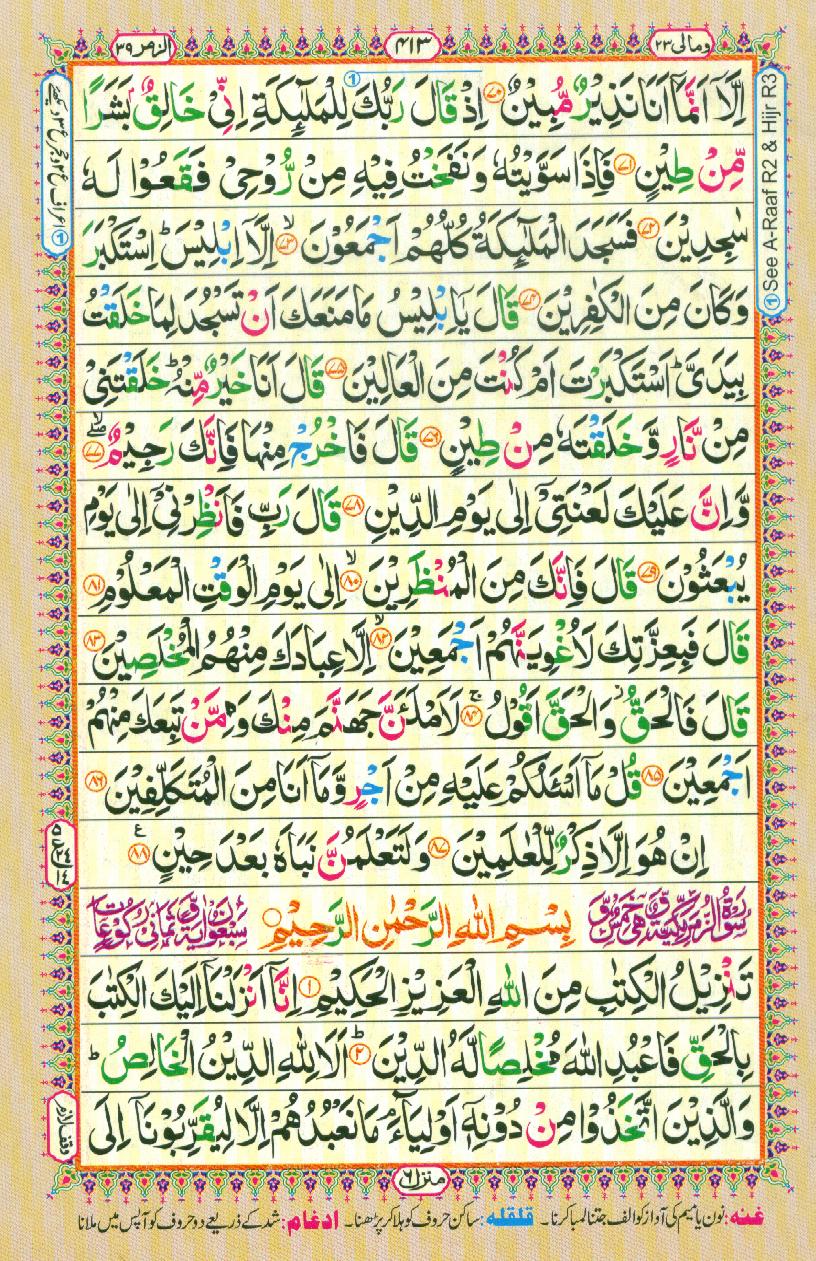 ومالی ۲۳
۴۱۳
الزمر ۳۹
اِلَّاۤ اَنَّمَاۤ اَنَا نَذِیْرٌ مُّبِیْنٌ ۷۰ اِذْ قَالَ رَبُّكَ لِلْمَلٰٓىِٕكَةِ اِنِّیْ خَالِقٌۢ بَشَرًا
مِّنْ طِیْنٍ ۷۱ فَاِذَا سَوَّیْتُهٗ وَ نَفَخْتُ فِیْهِ مِنْ رُّوْحِیْ فَقَعُوْا لَهٗ
سٰجِدِیْنَ ۷۲ فَسَجَدَ الْمَلٰٓىِٕكَةُ كُلُّهُمْ اَجْمَعُوْنَ ۙ۷۳ اِلَّاۤ اِبْلِیْسَ ؕ اِسْتَكْبَرَ
وَ كَانَ مِنَ الْكٰفِرِیْنَ ۷۴ قَالَ یٰۤاِبْلِیْسُ مَا مَنَعَكَ اَنْ تَسْجُدَ لِمَا خَلَقْتُ
بِیَدَیَّ ؕ اَسْتَكْبَرْتَ اَمْ كُنْتَ مِنَ الْعَالِیْنَ ۷۵ قَالَ اَنَا خَیْرٌ مِّنْهُ ؕ خَلَقْتَنِیْ
مِنْ نَّارٍ وَّ خَلَقْتَهٗ مِنْ طِیْنٍ ۷۶ قَالَ فَاخْرُجْ مِنْهَا فَاِنَّكَ رَجِیْمٌ ۷۷
وَّ اِنَّ عَلَیْكَ لَعْنَتِیْۤ اِلٰی یَوْمِ الدِّیْنِ ۷۸ قَالَ رَبِّ فَاَنْظِرْنِیْۤ اِلٰی یَوْمِ
یُبْعَثُوْنَ ۷۹ قَالَ فَاِنَّكَ مِنَ الْمُنْظَرِیْنَ ۙ۸۰ اِلٰی یَوْمِ الْوَقْتِ الْمَعْلُوْمِ ۸۱
قَالَ فَبِعِزَّتِكَ لَاُغْوِیَنَّهُمْ اَجْمَعِیْنَ ۙ۸۲ اِلَّا عِبَادَكَ مِنْهُمُ الْمُخْلَصِیْنَ ۸۳
قَالَ فَالْحَقُّ ؗ وَ الْحَقَّ اَقُوْلُ ۚ۸۴ لَاَمْلَـَٔنَّ جَهَنَّمَ مِنْكَ وَ مِمَّنْ تَبِعَكَ مِنْهُمْ
اَجْمَعِیْنَ ۸۵ قُلْ مَاۤ اَسْـَٔلُكُمْ عَلَیْهِ مِنْ اَجْرٍ وَّ مَاۤ اَنَا مِنَ الْمُتَكَلِّفِیْنَ ۸۶
اِنْ هُوَ اِلَّا ذِكْرٌ لِّلْعٰلَمِیْنَ ۸۷ وَ لَتَعْلَمُنَّ نَبَاَهٗ بَعْدَ حِیْنٍ ۸۸ ع
سُوْرَةُ الزُّمَرِ مَكِّیَّةٌ وَّهِیَ خَمْسٌ وَّ بِسْمِ اللّٰهِ الرَّحْمٰنِ الرَّحِیْمِ سَبْعُوْنَ اٰیَةً وَّ ثَمَانِیْ رُكُوْعَاتٍ
تَنْزِیْلُ الْكِتٰبِ مِنَ اللّٰهِ الْعَزِیْزِ الْحَكِیْمِ ۱ اِنَّاۤ اَنْزَلْنَاۤ اِلَیْكَ الْكِتٰبَ
بِالْحَقِّ فَاعْبُدِ اللّٰهَ مُخْلِصًا لَّهُ الدِّیْنَ ؕ۲ اَلَا لِلّٰهِ الدِّیْنُ الْخَالِصُ ؕ
وَ الَّذِیْنَ اتَّخَذُوْا مِنْ دُوْنِهٖۤ اَوْلِیَآءَ ۘ مَا نَعْبُدُهُمْ اِلَّا لِیُقَرِّبُوْنَاۤ اِلَی
① See A-Raaf R2 & Hijr R3
وقف لازم
منزل ۶
غنه: نون یا میم کی آواز کو الف جتنا لمبا کرنا۔ قلقله: ساکن حروف کو ہلا کر پڑھنا۔ ادغام: شد کے ذریعے دو حروف کو آپس میں ملانا